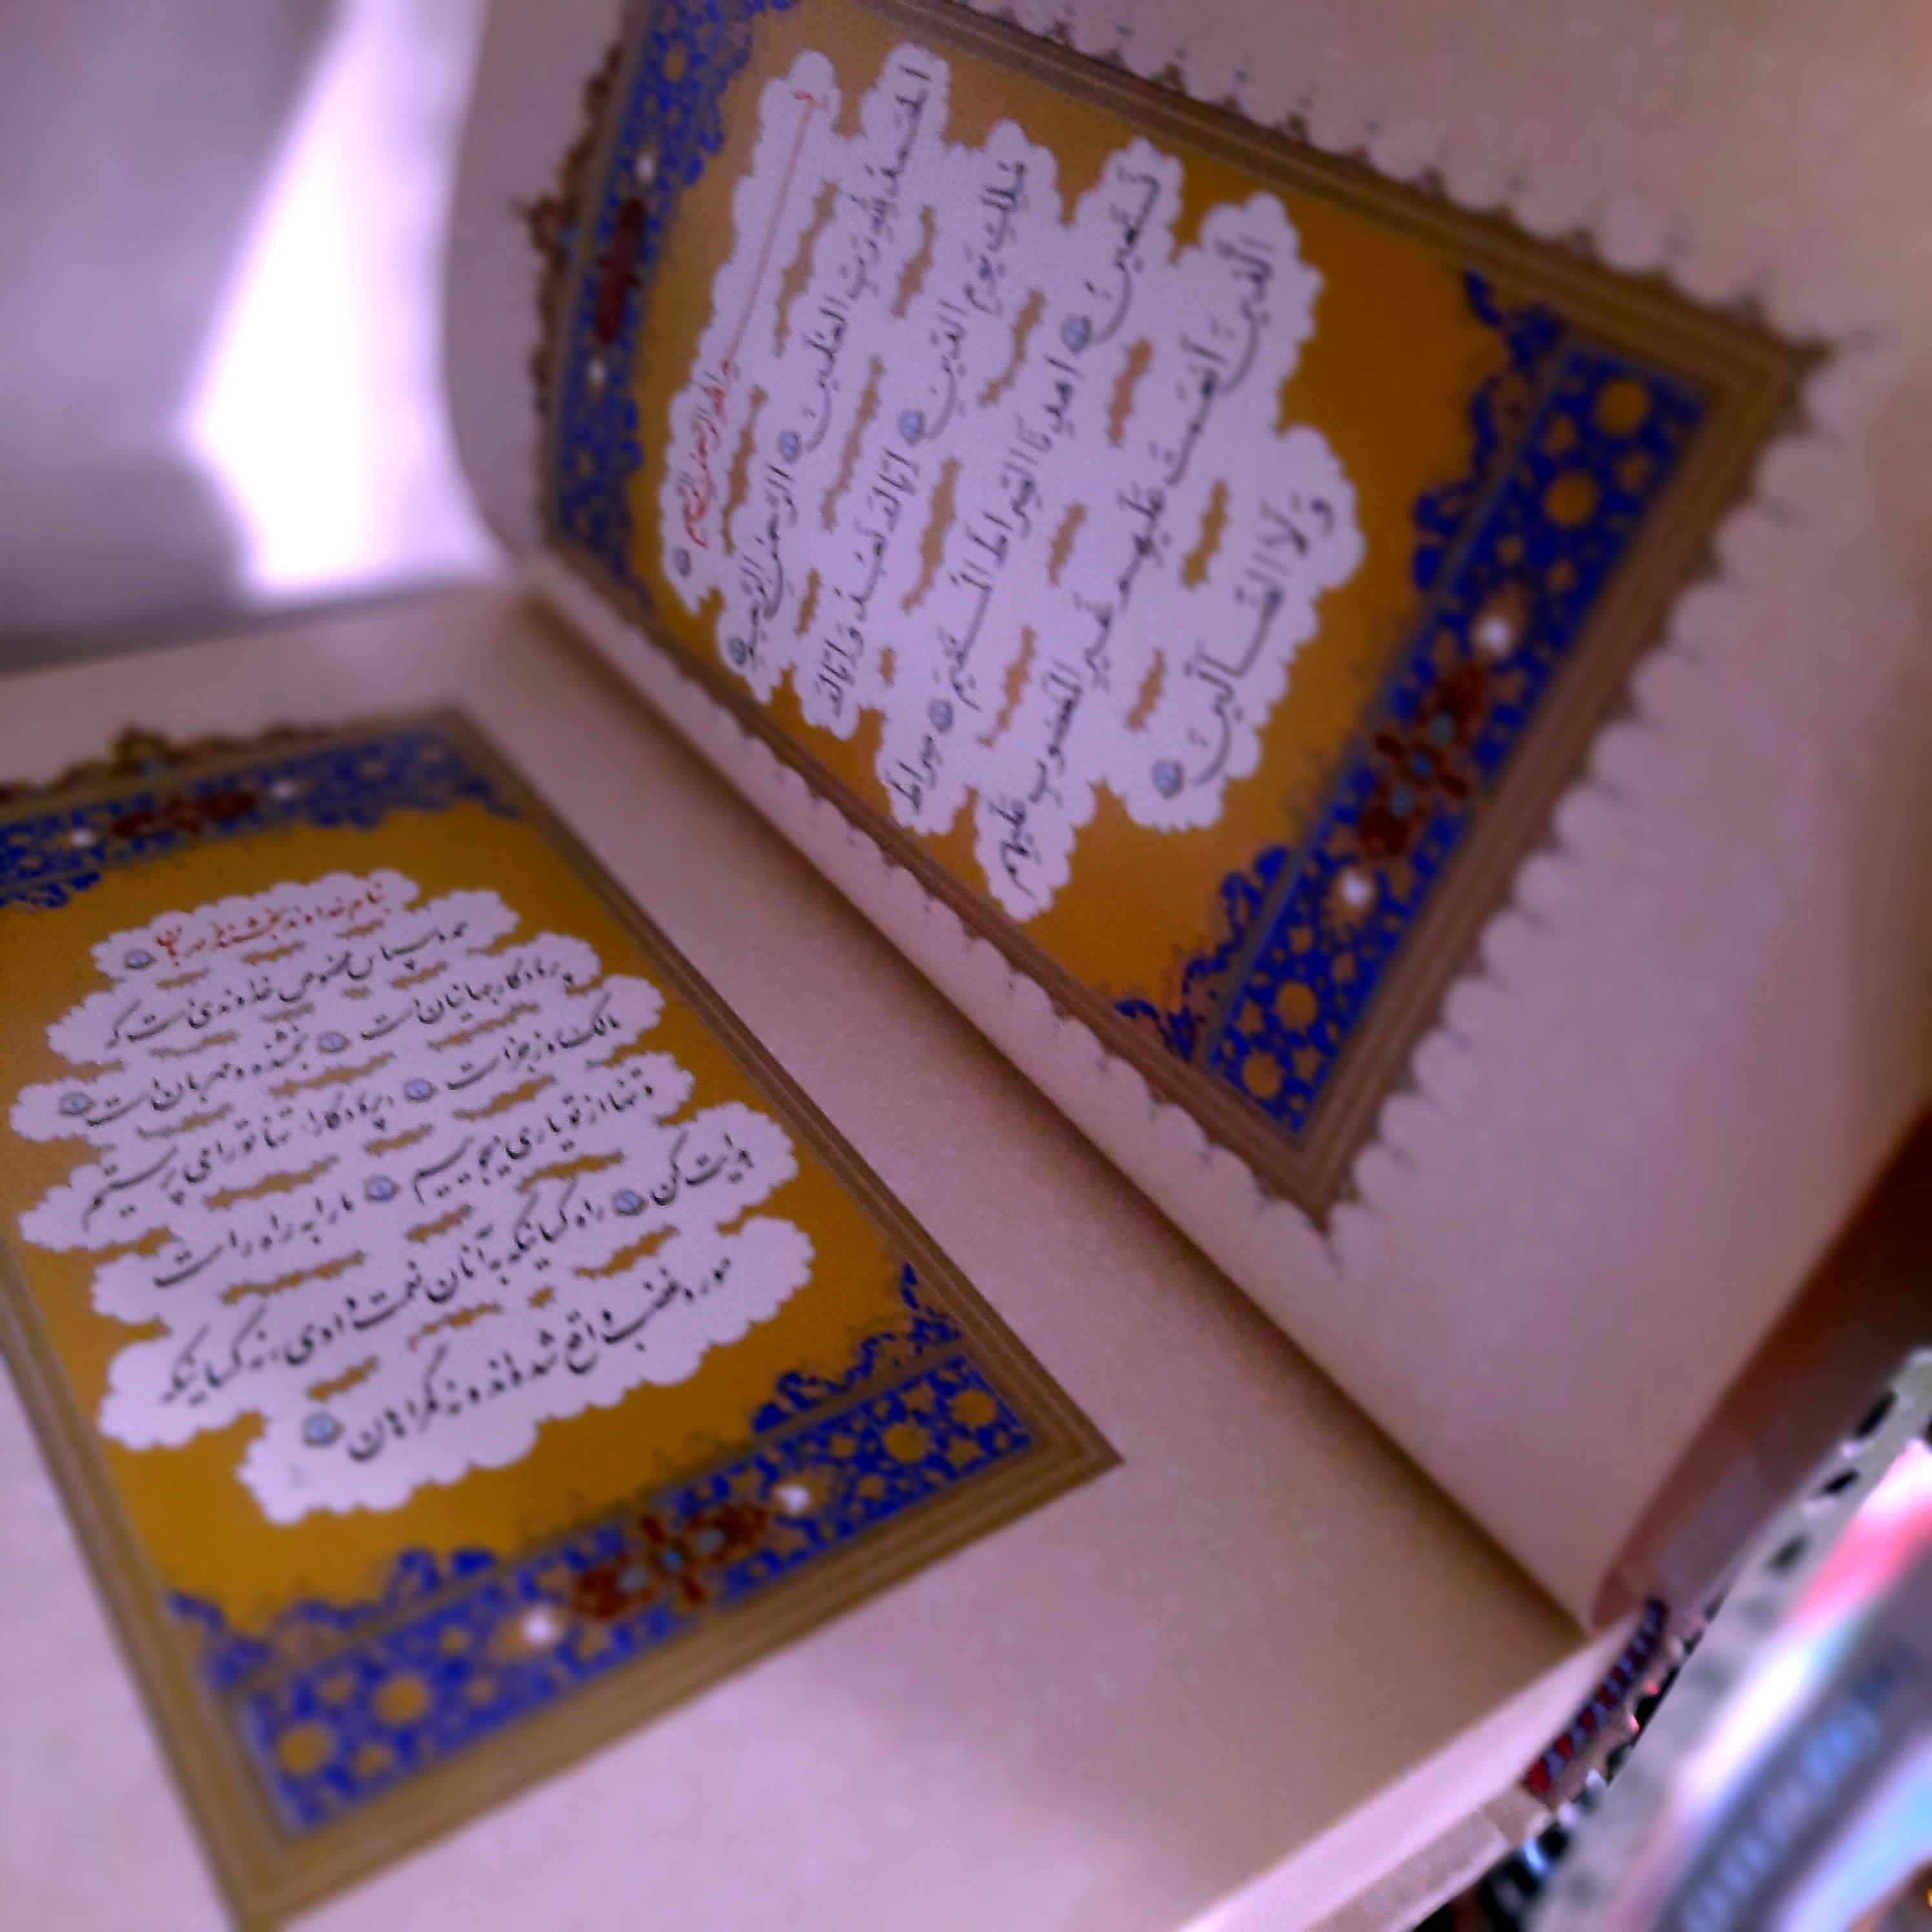 بِسْمِ اللهِ الرَّحْمٰنِ الرَّحیمِ
اَلْحَمْدُ لِلّٰهِ رَبِّ الْعٰلَمینَ ۝ اَلرَّحْمٰنِ الرَّحیمِ ۝
مٰلِكِ یَوْمِ الدّینِ ۝ اِیّاكَ نَعْبُدُ وَ اِیّاكَ
نَسْتَعینُ ۝ اِهْدِنَا الصِّراطَ الْمُسْتَقیمَ ۝ صِراطَ
الَّذینَ اَنْعَمْتَ عَلَیْهِمْ غَیْرِ الْمَغْضوُبِ عَلَیْهِمْ
وَلَا الضّالّینَ ۝
بنام خداوند بخشنده مهربان ۝
حمد و سپاس مخصوص خداوندی است که
پروردگار جهانیان است ۝ بخشنده و مهربان است ۝
مالک روز جزاست ۝ پروردگارا، تنها تو را می پرستیم
و تنها از تو یاری میجوییم ۝ ما را به راه راست
هدایت کن ۝ راه کسانیکه به آنان نعمت دادی، نه کسانیکه
مورد غضب واقع شده‌اند و نه گمراهان ۝